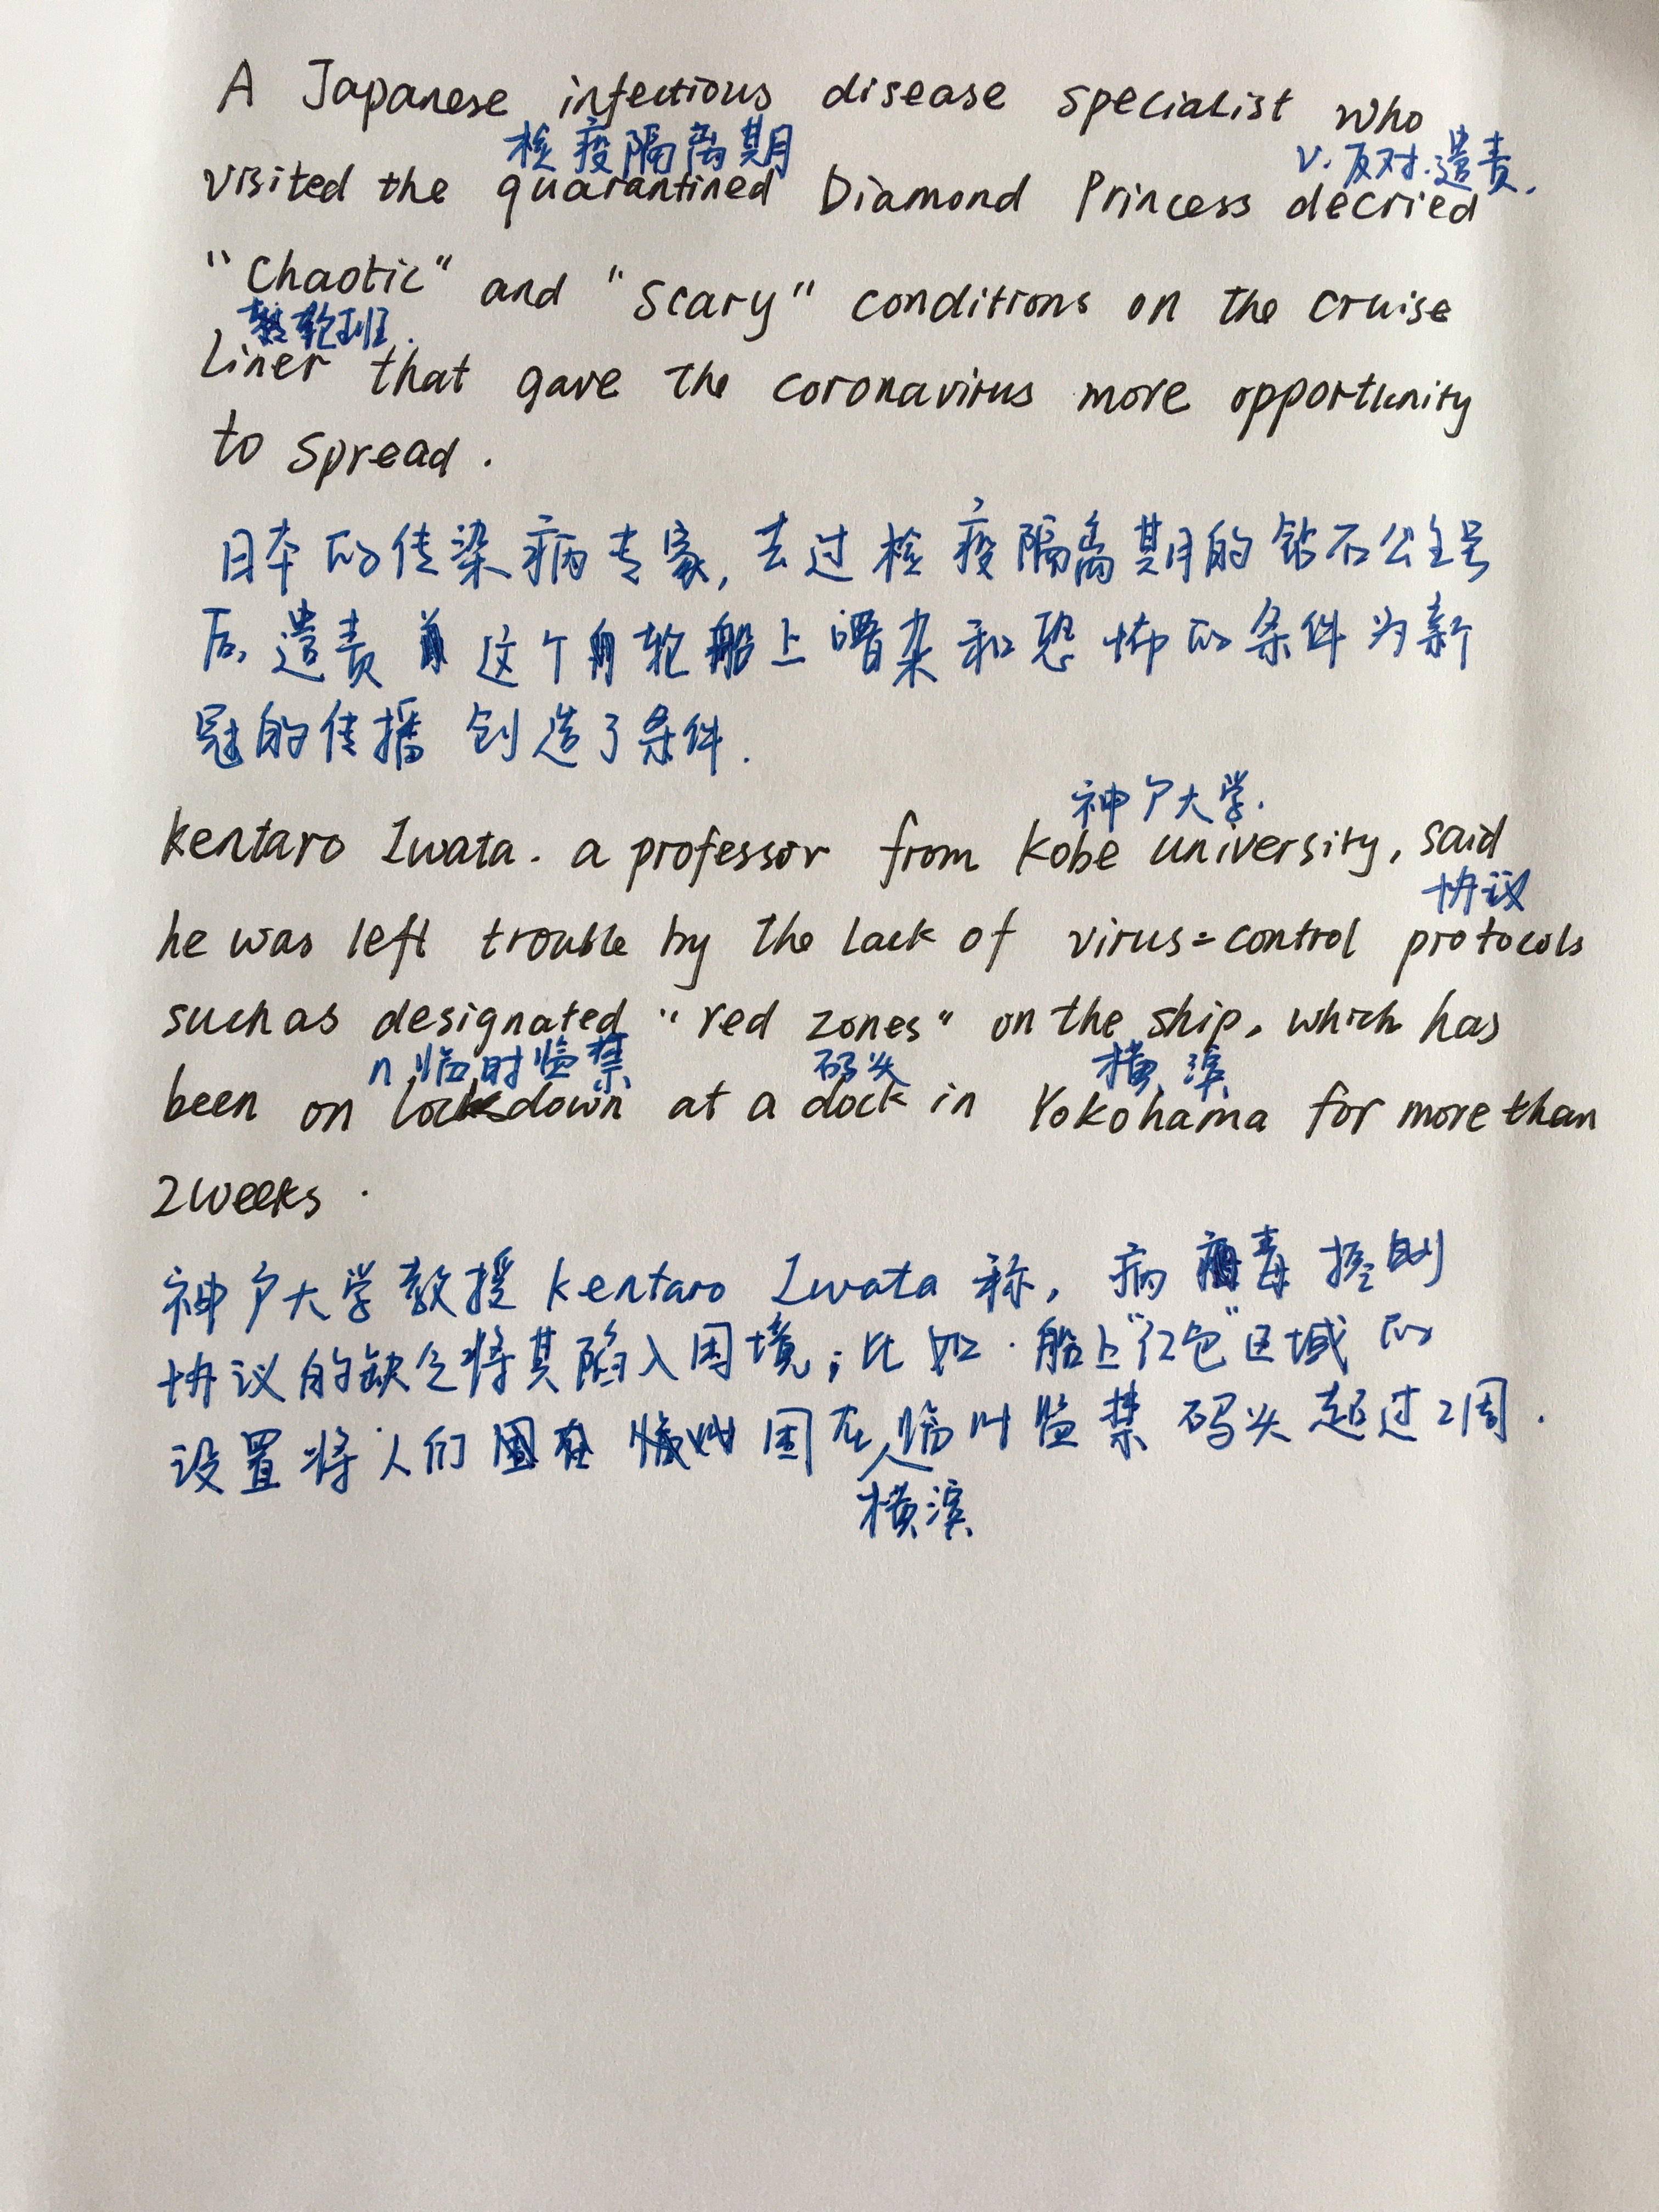 A Japanese infectious disease specialist who
检疫隔离期 v. 反对.遣责.
visited the quarantined Diamond Princess decried
"Chaotic" and "Scary" conditions on the cruise
轮班.
Liner that gave the coronavirus more opportunity
to spread.
日本的传染病专家,去过检疫隔离期的钻石公主号
后,遣责 这个 轮船上嘈杂和恐怖的条件为新
冠的传播 创造了条件.
神户大学.
Kentaro Iwata. a professor from Kobe university, said
协议
he was left trouble by the lack of virus=control protocols
such as designated "red zones" on the ship, which has
n 临时监禁 码头 横滨
been on lockdown at a dock in Yokohama for more than
2weeks.
神户大学教授 Kentaro Iwata 称, 病 毒 控制
协议的缺乏将其陷入困境;比如.船上"红色"区域的
设置将人们 困在 临时监禁 码头超过2周.
横滨